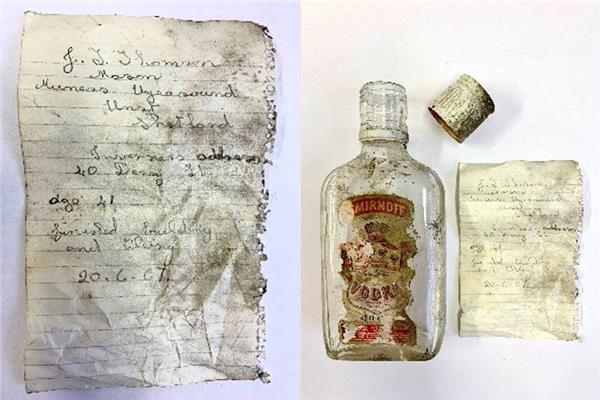 J. T. Thomson
Mason
Muness Uyeasound
Unst
Shetland
Inverness address
40 St
age 41
finished building
and
20.6.67.
SMIRNOFF
VODKA